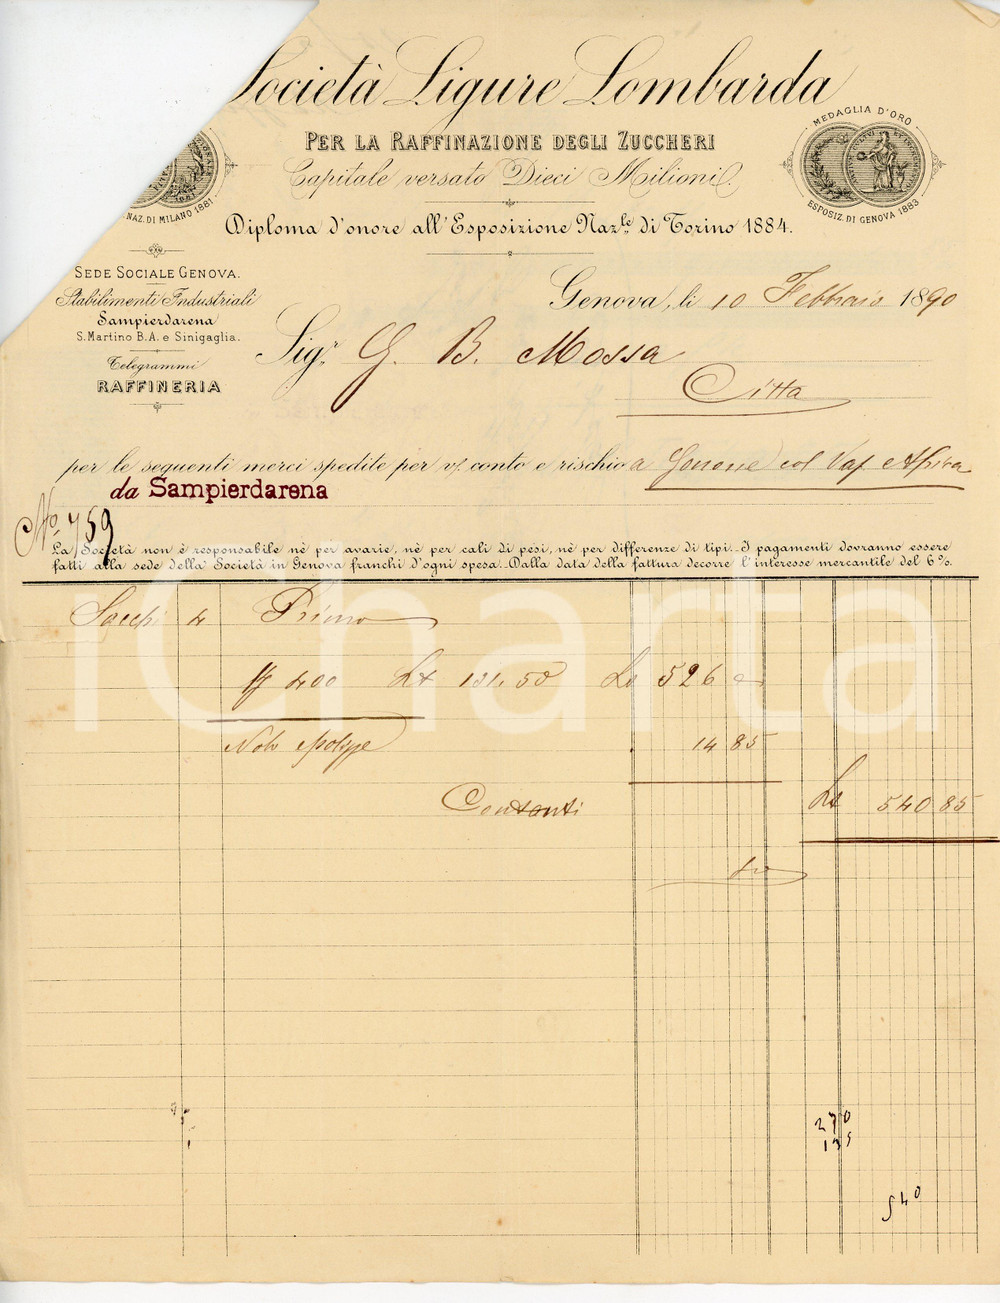 Società Ligure Lombarda
PER LA RAFFINAZIONE DEGLI ZUCCHERI
Capitale versato Dieci Milioni
Diploma d'onore all'Esposizione Naz.le di Torino 1884.
NAZ. DI MILANO 1881
MEDAGLIA D'ORO
ESPOSIZ. DI GENOVA 1883
SEDE SOCIALE GENOVA.
Stabilimenti Industriali
Sampierdarena
S. Martino B.A. e Sinigaglia.
Telegrammi
RAFFINERIA
Genova, li 10 Febbraio 1890
Sigr. G. B. Mossa
Citta
per le seguenti merci spedite per v/ conto e rischio a Genova col Vap.
da Sampierdarena
No. 759
La Società non è responsabile nè per avarie, nè per cali di pesi, nè per differenze di tipi. I pagamenti dovranno essere
fatti alla sede della Società in Genova franchi d'ogni spesa. Dalla data della fattura decorre l'interesse mercantile del 6%.
Sacchi 4 Primo
400 Lt 131.50 Lt 526
Nolo 14 85
Contanti Lt 540 85
270
135
540
iCharta